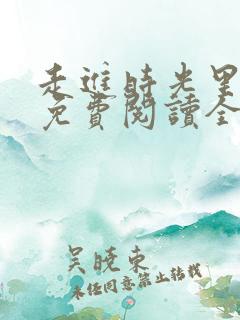 走進時光里
免費閱讀全
吴曉東
未任同意禁止转载